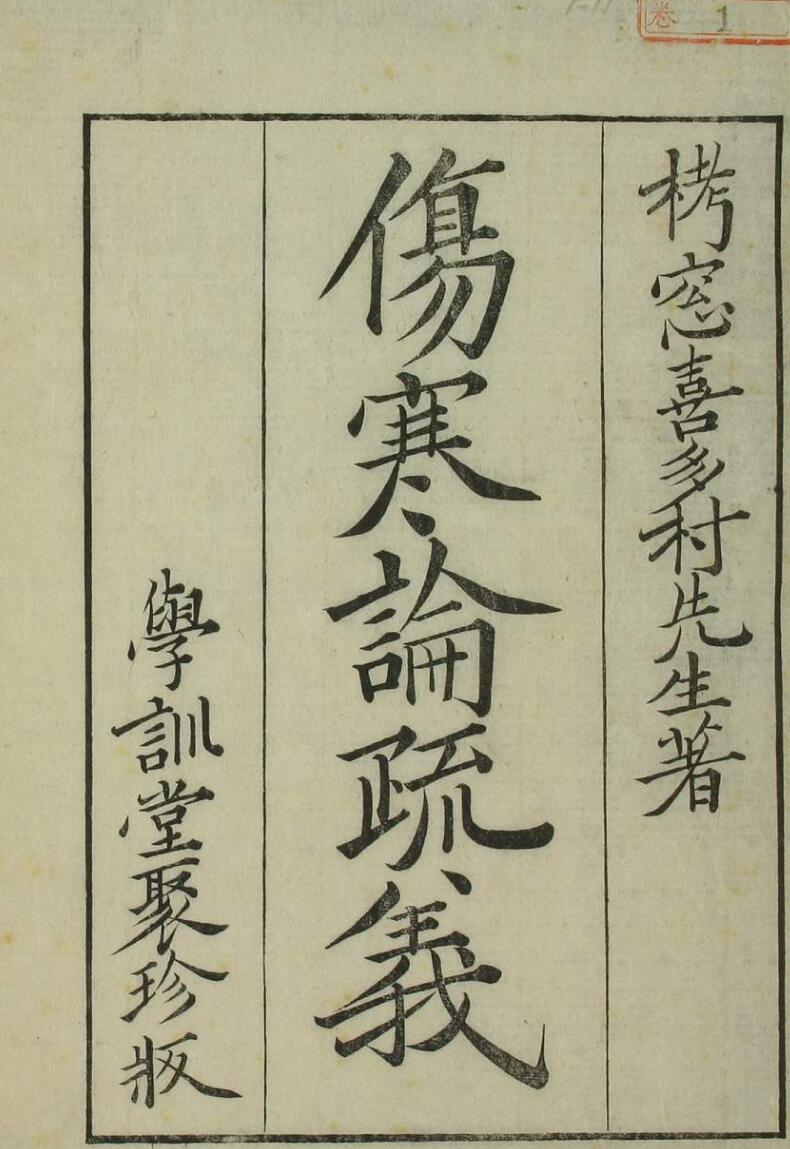 栲窓喜多村先生著
傷寒論疏義
學訓堂聚珍版
卷 1